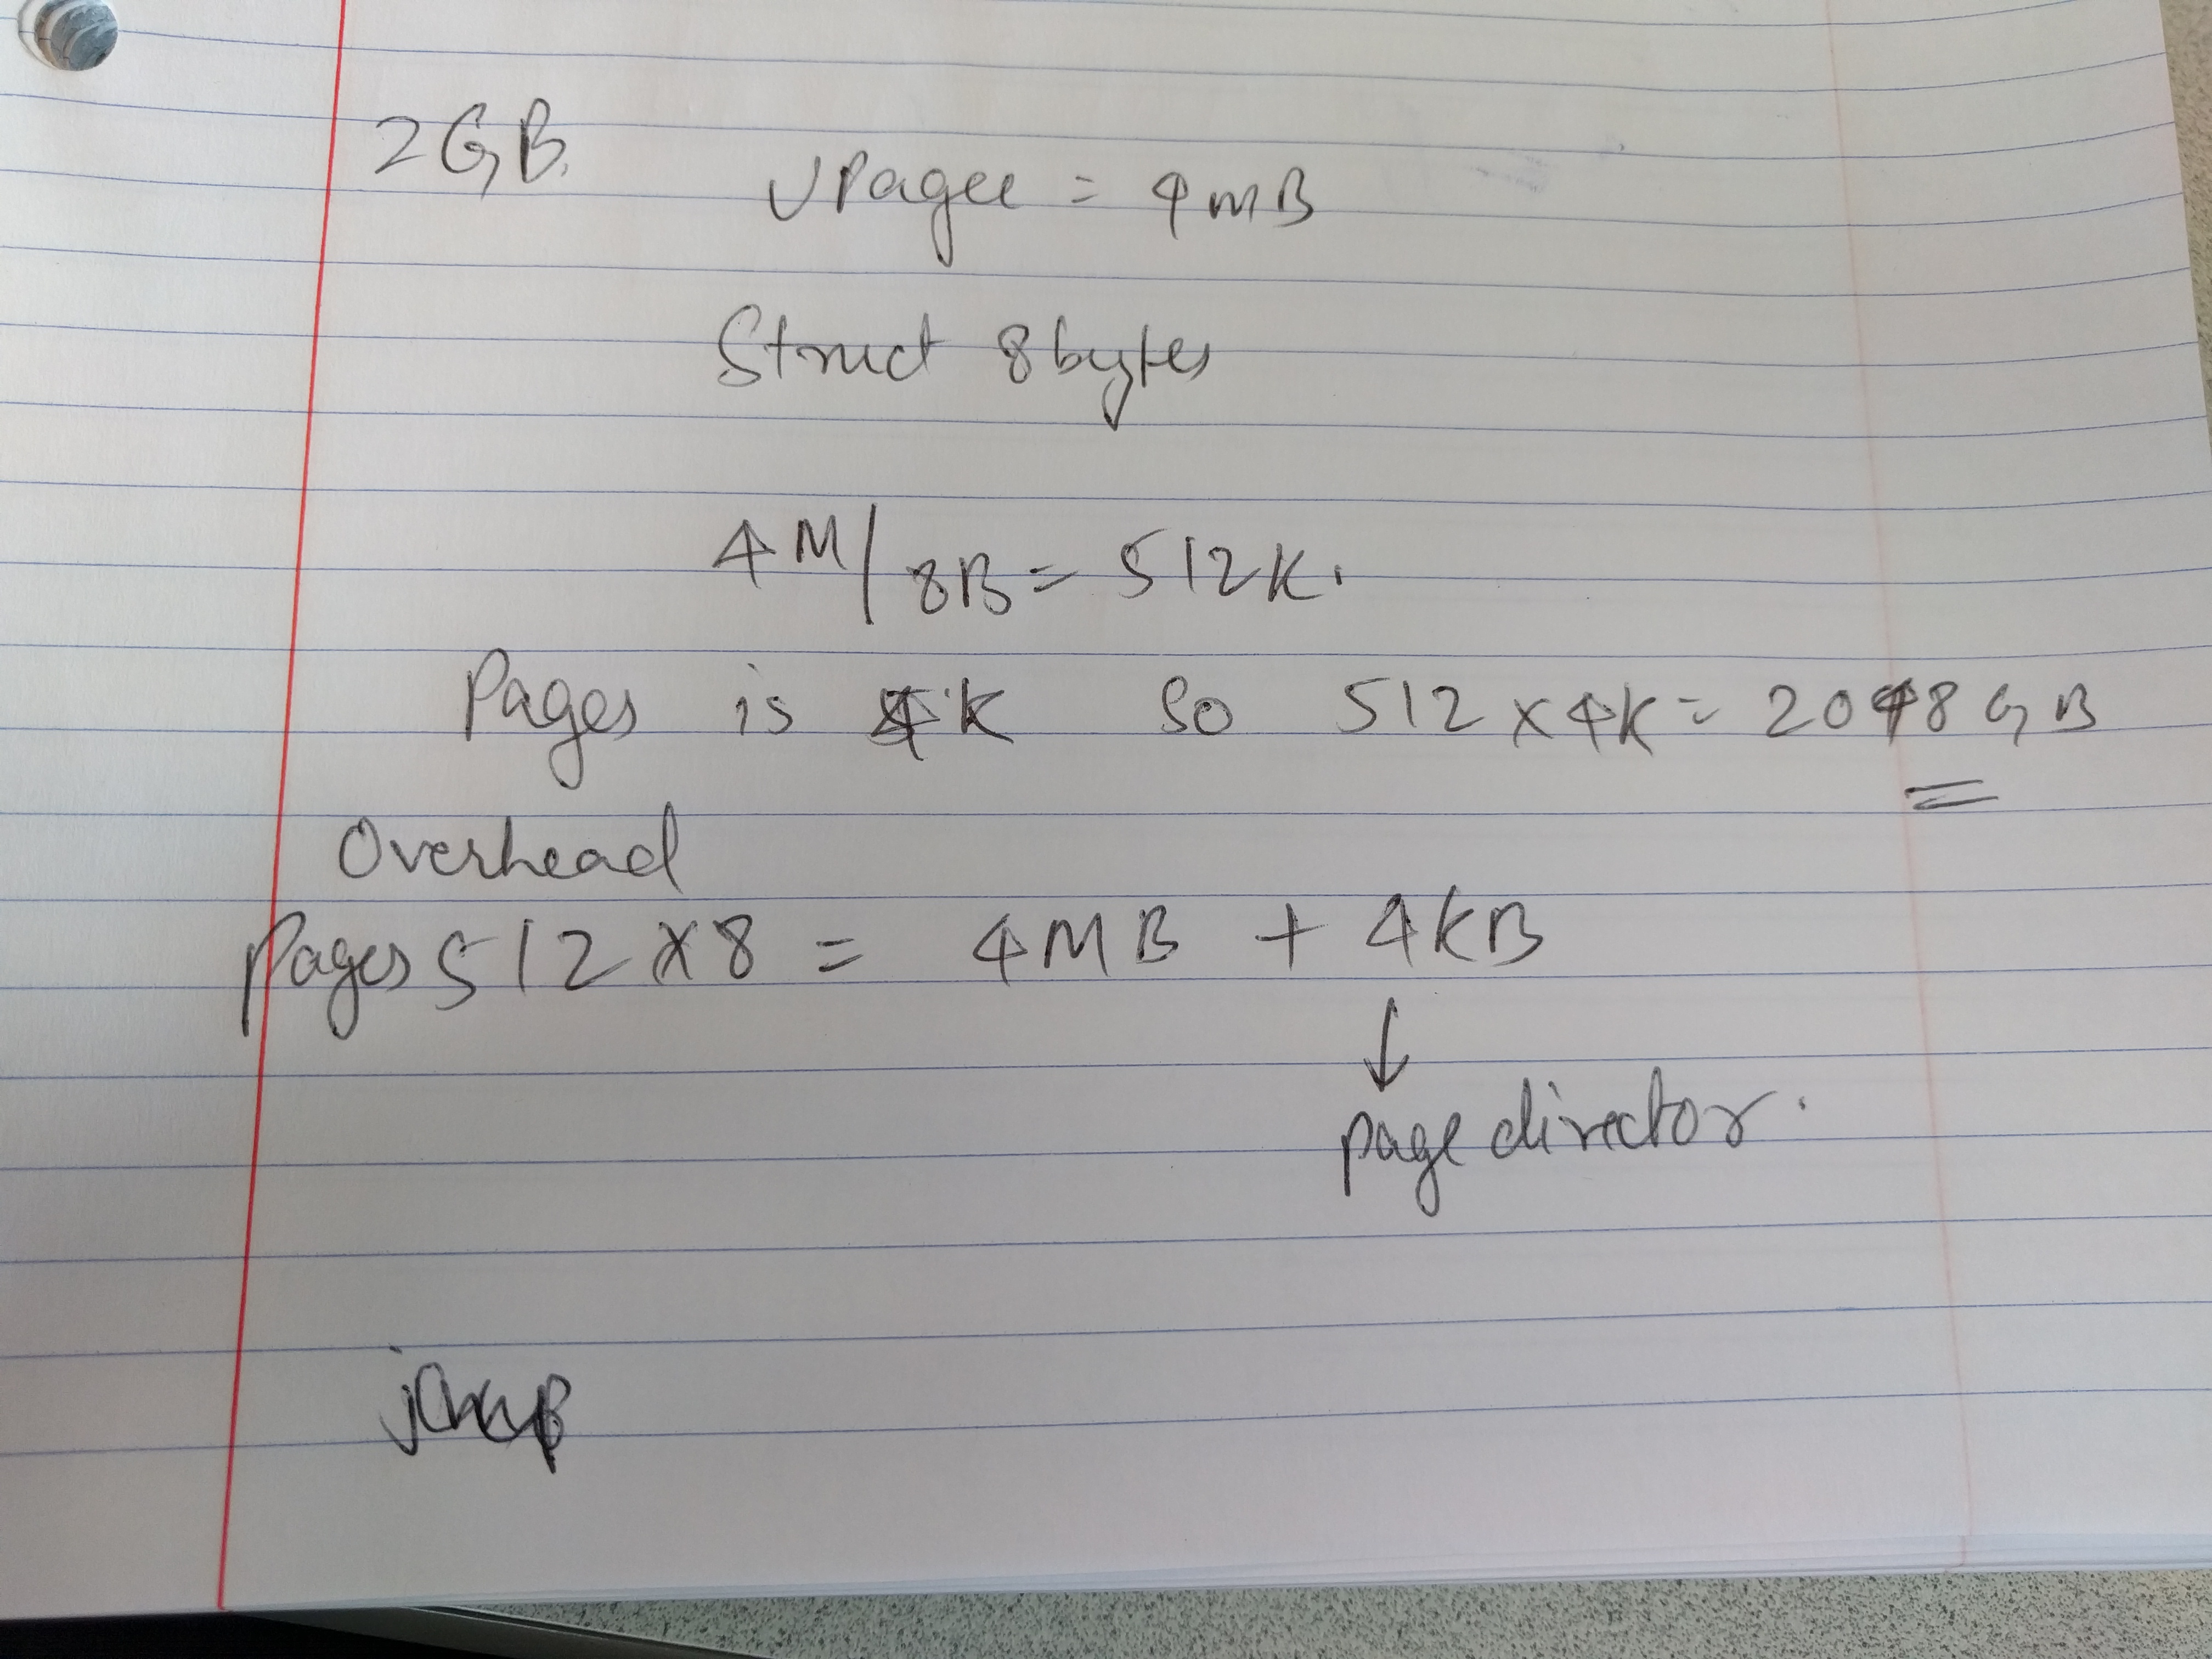 2GB.
UPagee = 4MB
Struct 8bytes
4M/8B = 512K.
Pages is 4K So 512 x 4K = 2048GB
Overhead
Pages 512 x 8 = 4MB + 4KB
↓
page director.